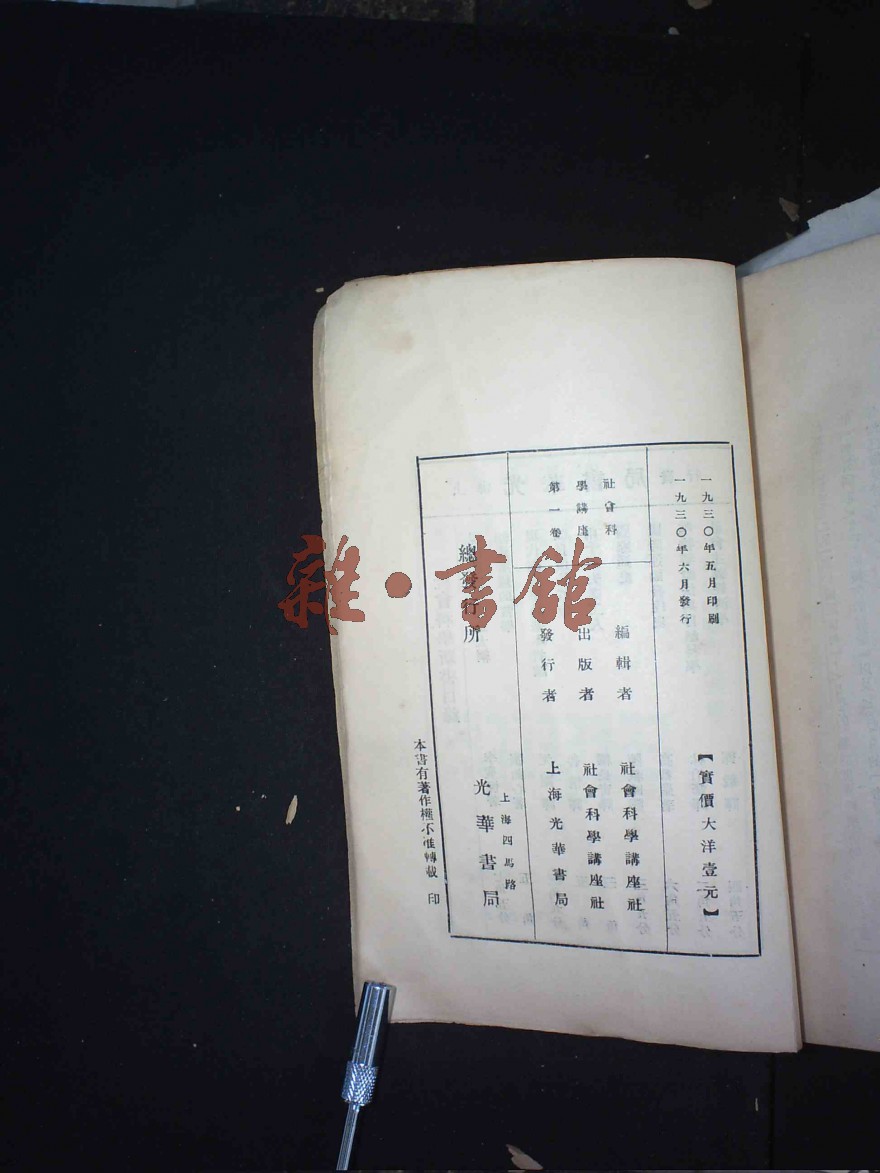 一九三〇年五月印刷
一九三〇年六月發行
【實價大洋壹元】
社會科
學講座
第一卷
編輯者 社會科學講座社
出版者 社會科學講座社
發行者 上海光華書局
總發行所
上海四馬路
光華書局
本書有著作權不准轉載 印
雜·書館